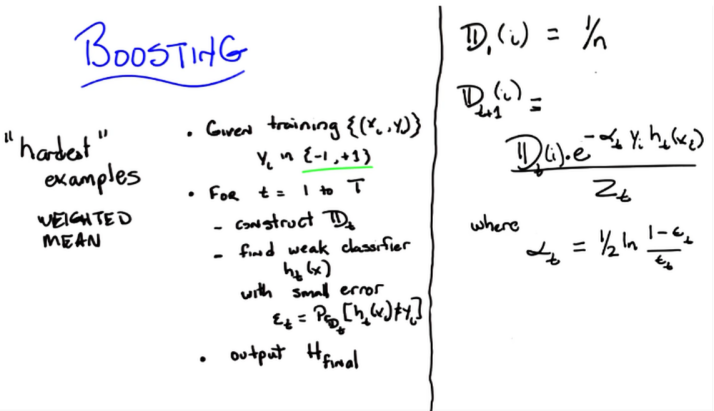 BOOSTING
"hardest"
examples
WEIGHTED
MEAN
• Given training {(xᵢ, yᵢ)}
yᵢ in {-1, +1}
• For t = 1 to T
- construct 𝔻ₜ
- find weak classifier
hₜ(x)
with small error
εₜ = P_𝔻ₜ[hₜ(xᵢ)≠yᵢ]
• output H_final
𝔻₁(i) = 1/n
𝔻ₜ₊₁(i) =
𝔻ₜ(i)·e^(-αₜ yᵢ hₜ(xᵢ))
Zₜ
where
αₜ = 1/2 ln (1-εₜ)/εₜ